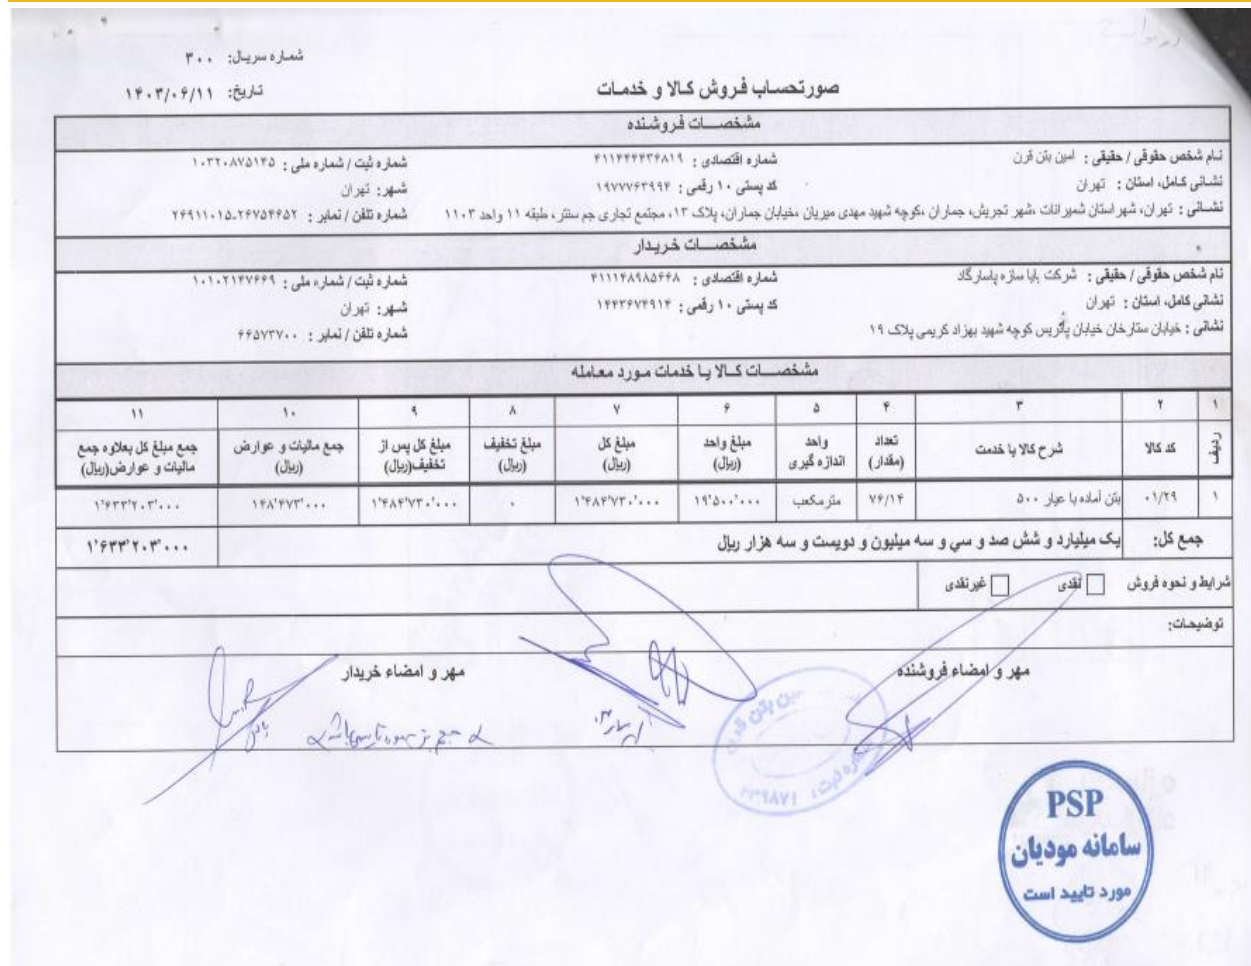 شماره سریال: ۳۰۰
تاریخ: ۱۴۰۳/۰۶/۱۱
صورتحساب فروش کالا و خدمات
مشخصات فروشنده
نام شخص حقوقی / حقیقی : امین بتن قرن شماره اقتصادی : ۴۱۱۴۴۴۴۳۶۸۱۹ شماره ثبت / شماره ملی : ۱۰۳۲۰۸۷۵۱۴۵
نشانی کامل، استان : تهران کد پستی ۱۰ رقمی : ۱۹۷۷۷۶۳۹۹۴ شهر: تهران
نشانی : تهران، شهراستان شمیرانات، شهر تجریش، جماران ،کوچه شهید مهدی میریان ،خیابان جماران، پلاک ۱۳، مجتمع تجاری جم سنتر، طبقه ۱۱ واحد ۱۱۰۳ شماره تلفن / نمابر : ۲۶۷۵۴۶۵۲-۲۶۹۱۱۰۱۵
مشخصات خریدار
نام شخص حقوقی / حقیقی : شرکت پایا سازه پاسارگاد شماره اقتصادی : ۴۱۱۱۴۸۹۸۵۶۶۸ شماره ثبت / شماره ملی : ۱۰۱۰۲۱۴۷۶۶۹
نشانی کامل، استان : تهران کد پستی ۱۰ رقمی : ۱۴۴۳۶۷۴۹۱۴ شهر: تهران
نشانی : خیابان ستارخان خیابان پاتریس کوچه شهید بهزاد کریمی پلاک ۱۹ شماره تلفن / نمابر : ۶۶۵۷۳۷۰۰
مشخصات کالا یا خدمات مورد معامله
۱ ۲ ۳ ۴ ۵ ۶ ۷ ۸ ۹ ۱۰ ۱۱
ردیف کد کالا شرح کالا یا خدمت تعداد (مقدار) واحد اندازه گیری مبلغ واحد (ریال) مبلغ کل (ریال) مبلغ تخفیف (ریال) مبلغ کل پس از تخفیف(ریال) جمع مالیات و عوارض (ریال) جمع مبلغ کل بعلاوه جمع مالیات و عوارض(ریال)
۱ ۰۱/۲۹ بتن آماده با عیار ۵۰۰ ۷۶/۱۴ متر مکعب ۱۹٬۵۰۰٬۰۰۰ ۱٬۴۸۴٬۷۳۰٬۰۰۰ ۰ ۱٬۴۸۴٬۷۳۰٬۰۰۰ ۱۴۸٬۴۷۳٬۰۰۰ ۱٬۶۳۳٬۲۰۳٬۰۰۰
جمع کل: یک میلیارد و شش صد و سی و سه میلیون و دویست و سه هزار ریال ۱٬۶۳۳٬۲۰۳٬۰۰۰
شرایط و نحوه فروش نقدی غیرنقدی
توضیحات:
مهر و امضاء فروشنده مهر و امضاء خریدار
بتن قرن
شماره ثبت: ۲۳۹۸۷۱
PSP
سامانه مودیان
مورد تایید است